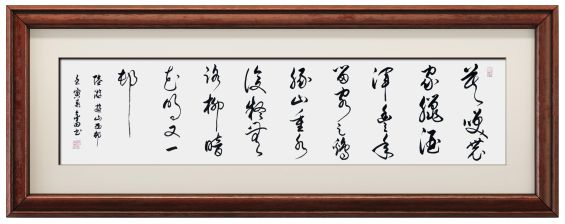 莫笑農
家臘酒
渾豐年
留客足鷄
豚山重水
復疑無
路柳暗
花明又一
村
陸游遊山西村
壬寅書